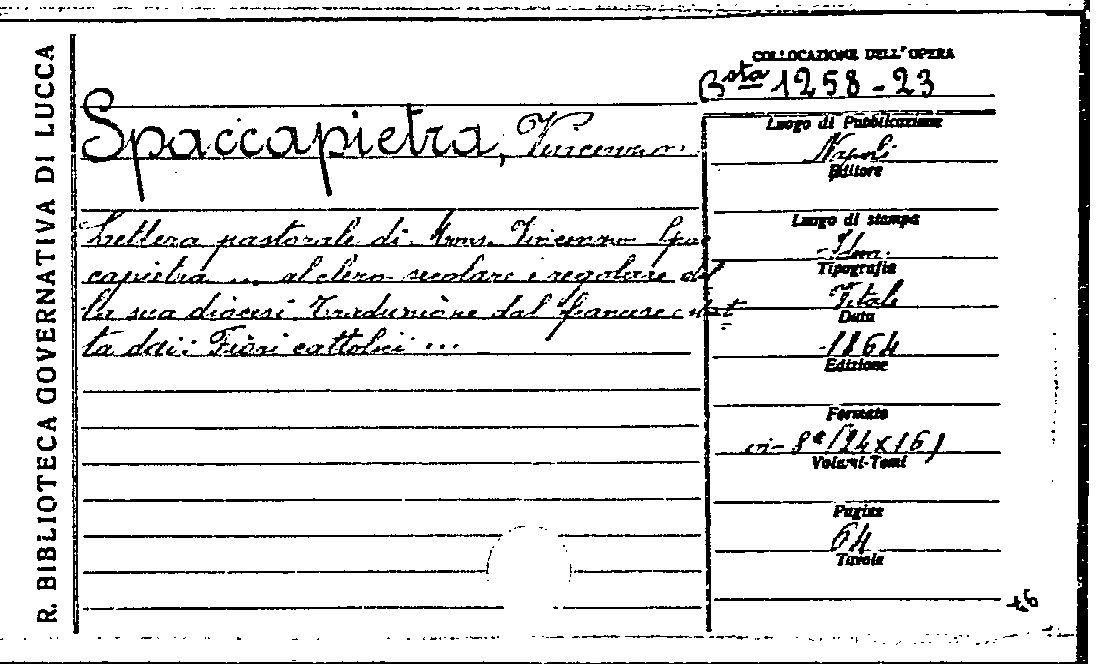 R. BIBLIOTECA GOVERNATIVA DI LUCCA
COLLOCAZIONE DELL'OPERA
Bsta 1258-23
Spaccapietra, Vincenzo
Lettera pastorale di Mons. Vincenzo Spac
capietra ... al clero secolare e regolare del
la sua diocesi. Traduzione dal francese
ta dai: Fiori cattolici ...
Luogo di Pubblicazione
Napoli
Editore
Luogo di stampa
Idem
Tipografia
Vitale
Data
1864
Edizione
Formato
in-8° (24x16)
Volumi-Tomi
Pagine
64
Tavole